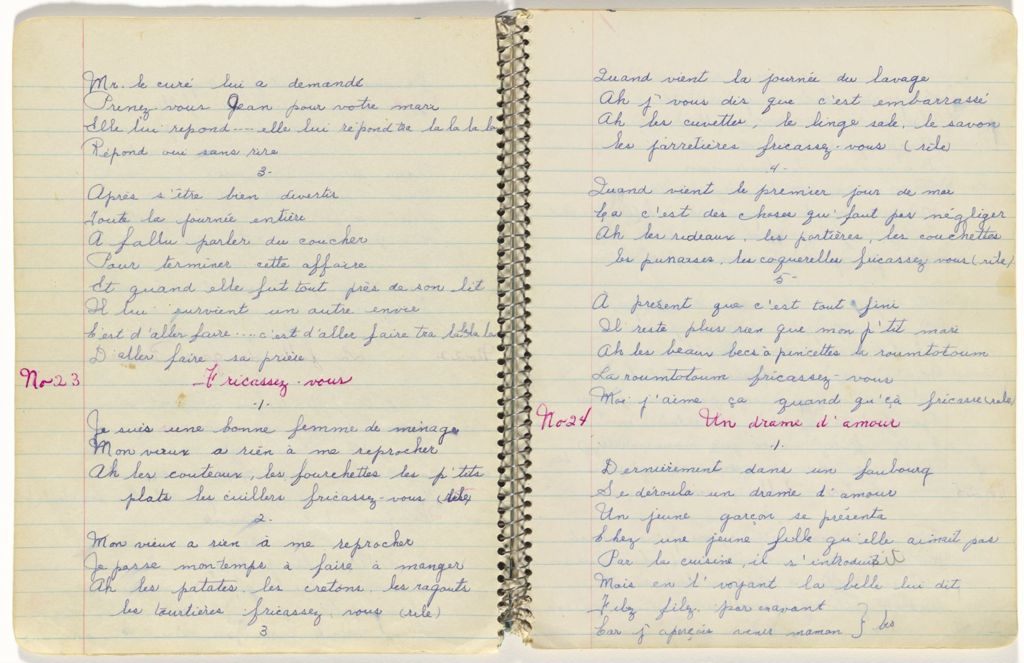 Mr. le curé lui a demandé
Prenez-vous Jean pour votre mari
Elle lui répond..... elle lui répond tra la la la la
Répond oui sans rire
3-
Après s'être bien divertir
Toute la journée entière
A fallu parler du coucher
Pour terminer cette affaire
Et quand elle fut tout près de son lit
Il lui survient un autre envie
C'est d'aller faire.... c'est d'aller faire tra la la la la
D'aller faire sa prière
No 23 Fricassez-vous
-1-
Je suis une bonne femme de ménage
Mon vieux a rien à me reprocher
Ah les couteaux, les fourchettes les p'tits
plats les cuillers fricassez-vous (rile)
2-
Mon vieux a rien à me reprocher
Je passe mon temps à faire à manger
Ah les patates, les cretons, les ragouts
les tourtières fricassez vous (rile)
3
Quand vient la journée du lavage
Ah j'vous dis que c'est embarrassé
Ah les cuvettes, le linge sale, le savon
les jarretières fricassez-vous (rile)
-4-
Quand vient le premier jour de mai
Ça c'est des choses qu'faut pas négliger
Ah les rideaux, les portières, les couchettes
les punaises, les coquerelles fricassez vous (rile)
5-
A présent que c'est tout fini
Il reste plus rien que mon p'tit mari
Ah les beaux becs à pincettes la roumtotoum
La roumtotoum fricassez-vous
Moi j'aime ça quand qu'çà fricasse (rile)
No 24 Un drame d'amour
-1-
Dernièrement dans un faubourg
Se déroula un drame d'amour
Un jeune garçon se présenta
Chez une jeune fille qu'elle aimait pas
Par la cuisine, il s'introduisit
Mais en l'voyant la belle lui dit
Filez filez par en avant
Car j'aperçois venir maman } bis